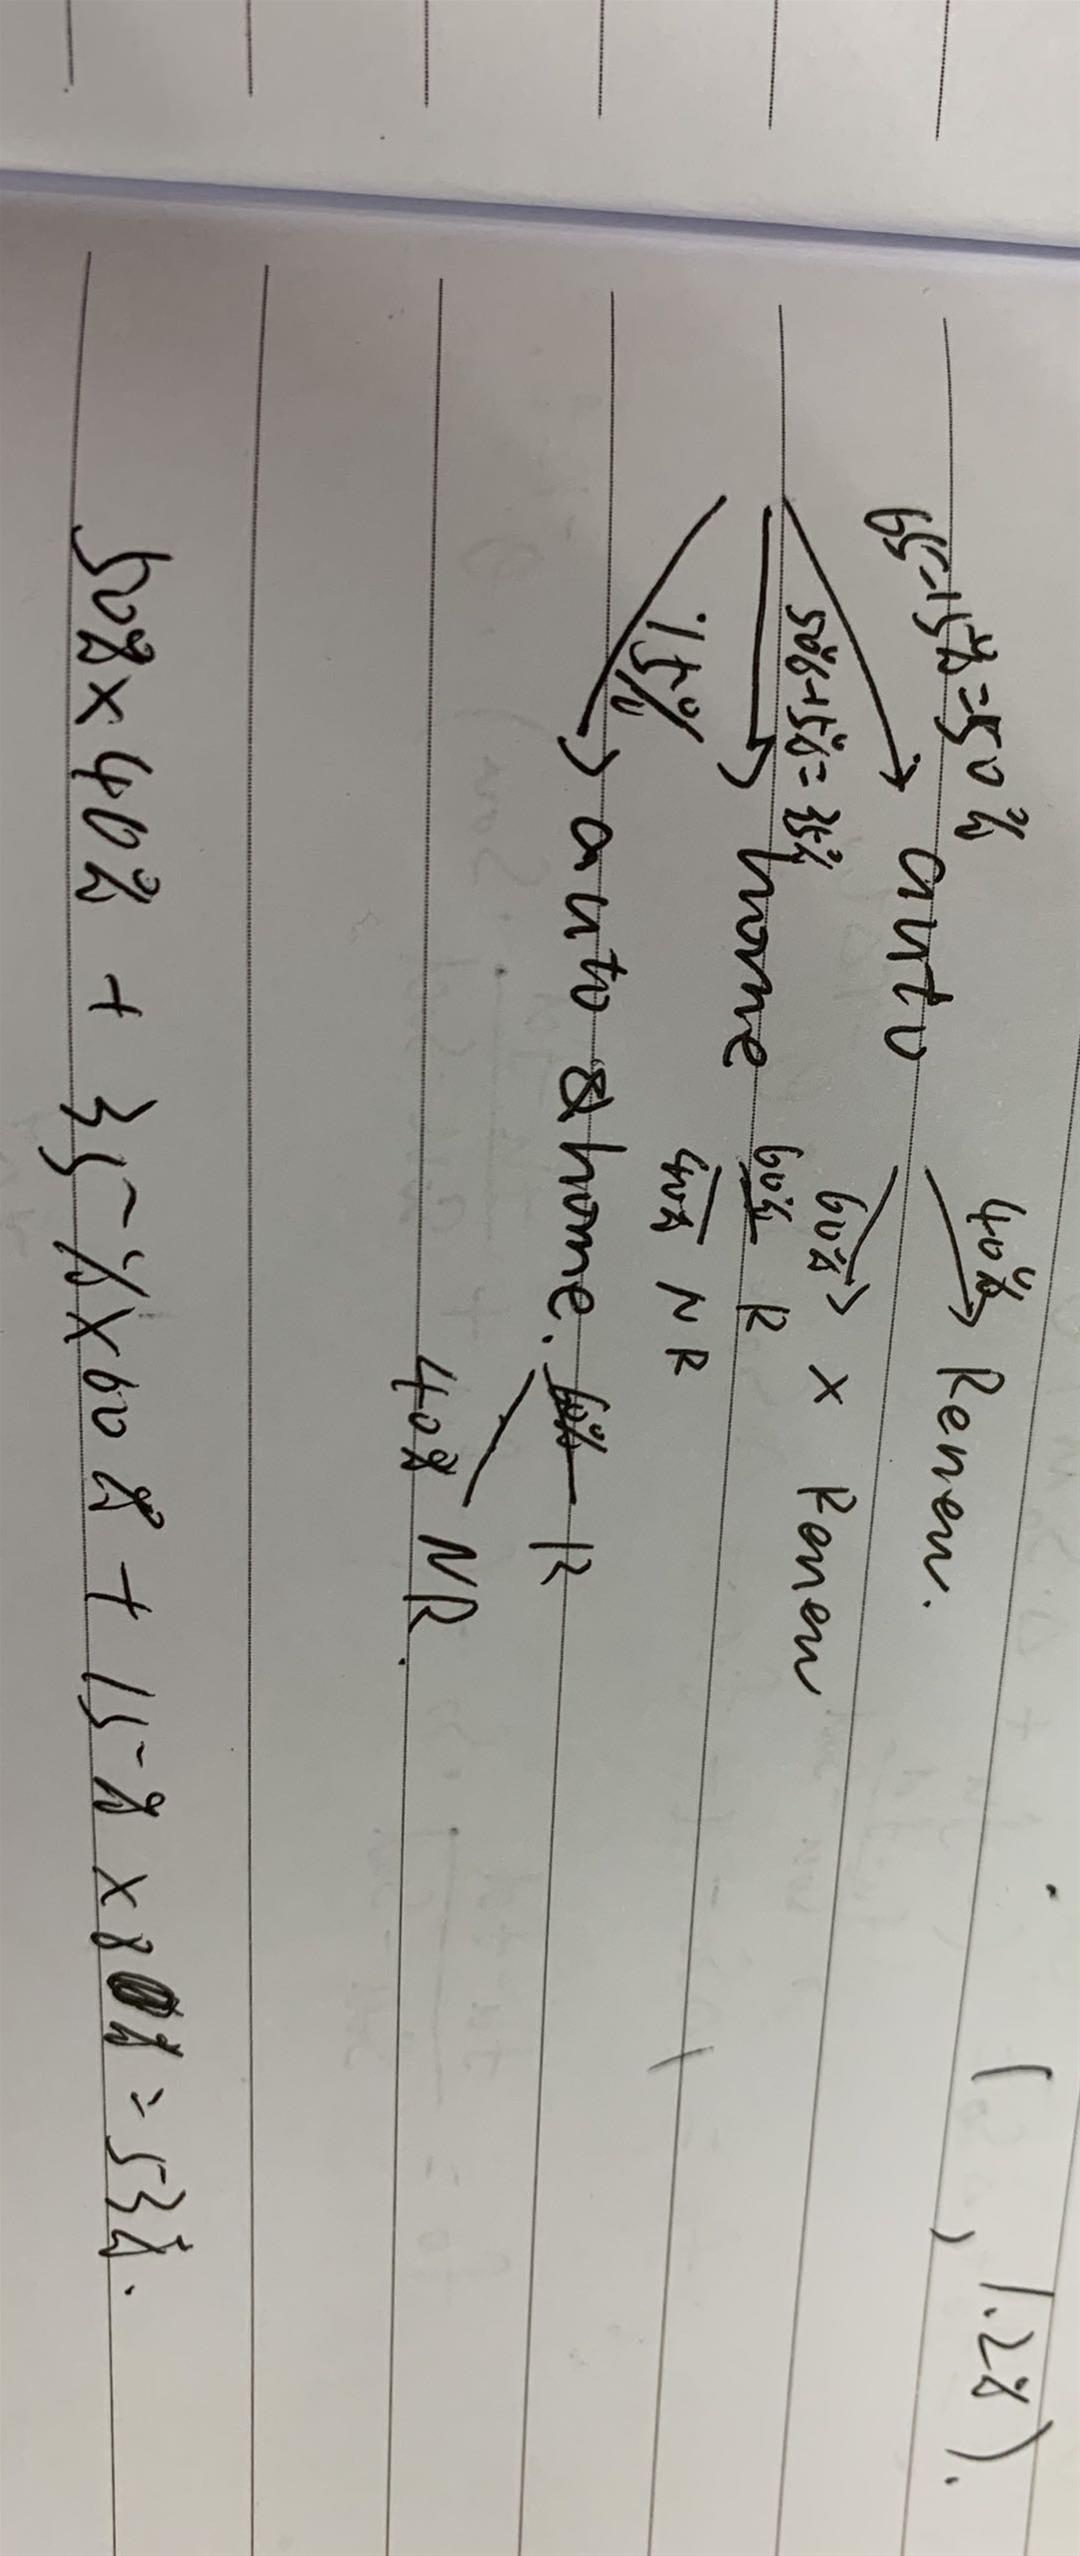 ( , 1.28).
65-15%=50%
auto
40% Renew.
60% x Renew
50%-15%=35%
home
60% R
40% NR
15%
auto & home.
60% R
40% NR.
50% x 40% + 35% x 60% + 15% x 80% = 53%.